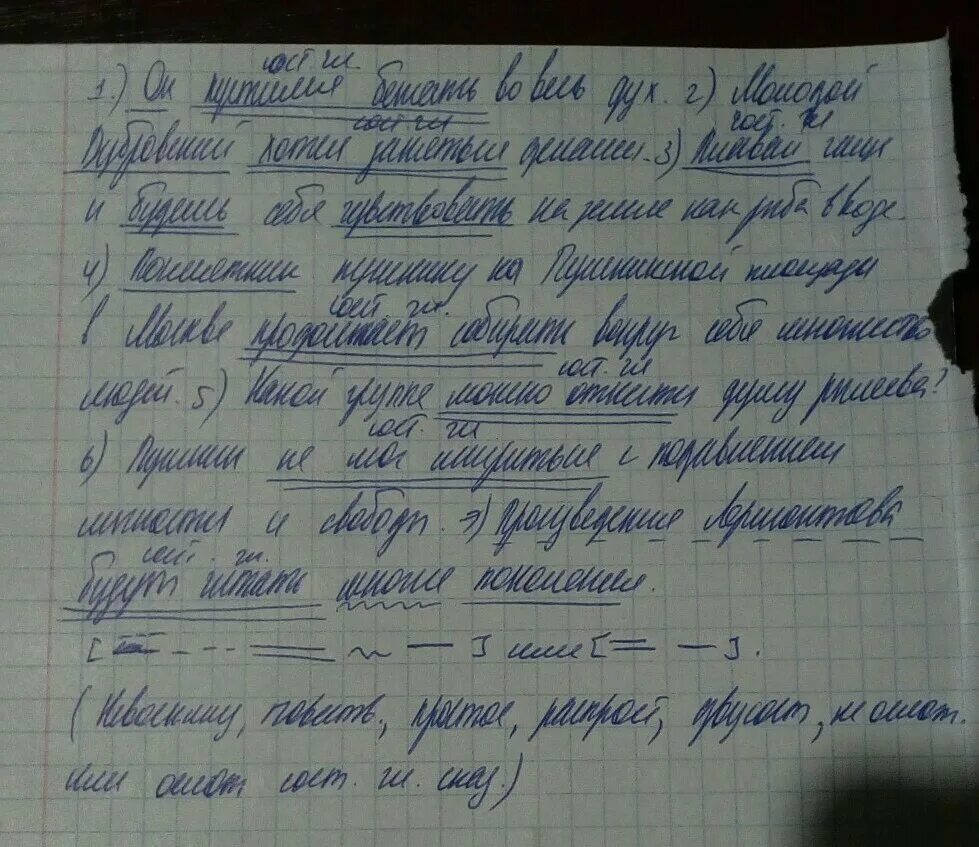 сост. гл.
1.) Он пустился бежать во весь дух. 2) Молодой
сост. гл сост. гл
Дубровский хотел заняться делами. 3) Плавай чаще
и будешь себя чувствовать на земле как рыба в воде.
4) Памятник Пушкину на Пушкинской площади
сост. гл.
в Москве продолжает собирать вокруг себя множество
сост. гл
людей. 5) Какой группе можно отнести думу рылеева?
сост. гл.
6) Пушкин не мог мириться с подавлением
личности и свободы. 7) Произведения Лермонтова
сост. гл.
будут читать многие поколения.
[ ] или [ ].
(Невосклиц, повеств., простое, распрост, двусост, не ослож.
или ослож сост. гл. сказ.)